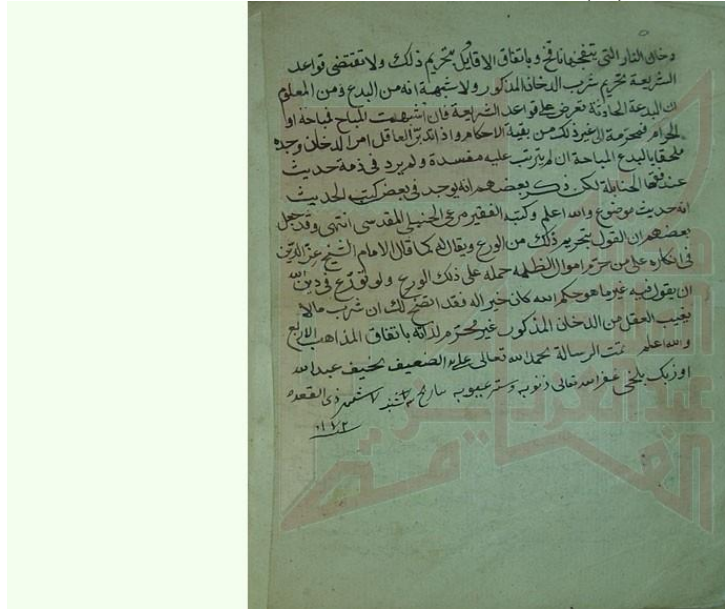 دخان النار التي ينفخها نافخ وباتفاق لا قايل بتحريم ذلك ولا تقتضي قواعد
الشريعة تحريم شرب الدخان المذكور ولا شبهة انه من البدع ومن المعلوم
ان البدعة الحادثة تعرض على قواعد الشريعة فان اشبهت المباح فمباحة او
الحرام فمحرمة الى غير ذلك من بقية الاحكام واذا تدبر العاقل امر الدخان وجده
ملحقا بالبدع المباحة ان لم يترتب عليه مفسدة ولم يرد في ذمه حديث
عند فقها الحنابلة لكن ذكر بعضهم انه يوجد في بعض كتب الحديث
انه حديث موضوع والله اعلم وكتبه الفقير مرعي الحنبلي المقدسي انتهى وقد جعل
بعضهم ان القول بتحريم ذلك من الورع ويقال له كما قال الامام الشيخ عز الدين
في انكاره على من حرم اموال الظلمه حمله على ذلك الورع ولو تورع في دين الله
ان يقول فيه غير ما هو حكم الله كان خيرا له فقد اتضح لك ان شرب ما لا
يغيب العقل من الدخان المذكور غير محرم لذاته باتفاق المذاهب الاربع
والله اعلم تمت الرسالة بحمد الله تعالى على يد الضعيف النحيف عبد الله
اوزبك بلخي غفر الله تعالى ذنوبه وستر عيوبه شهر ذي القعده